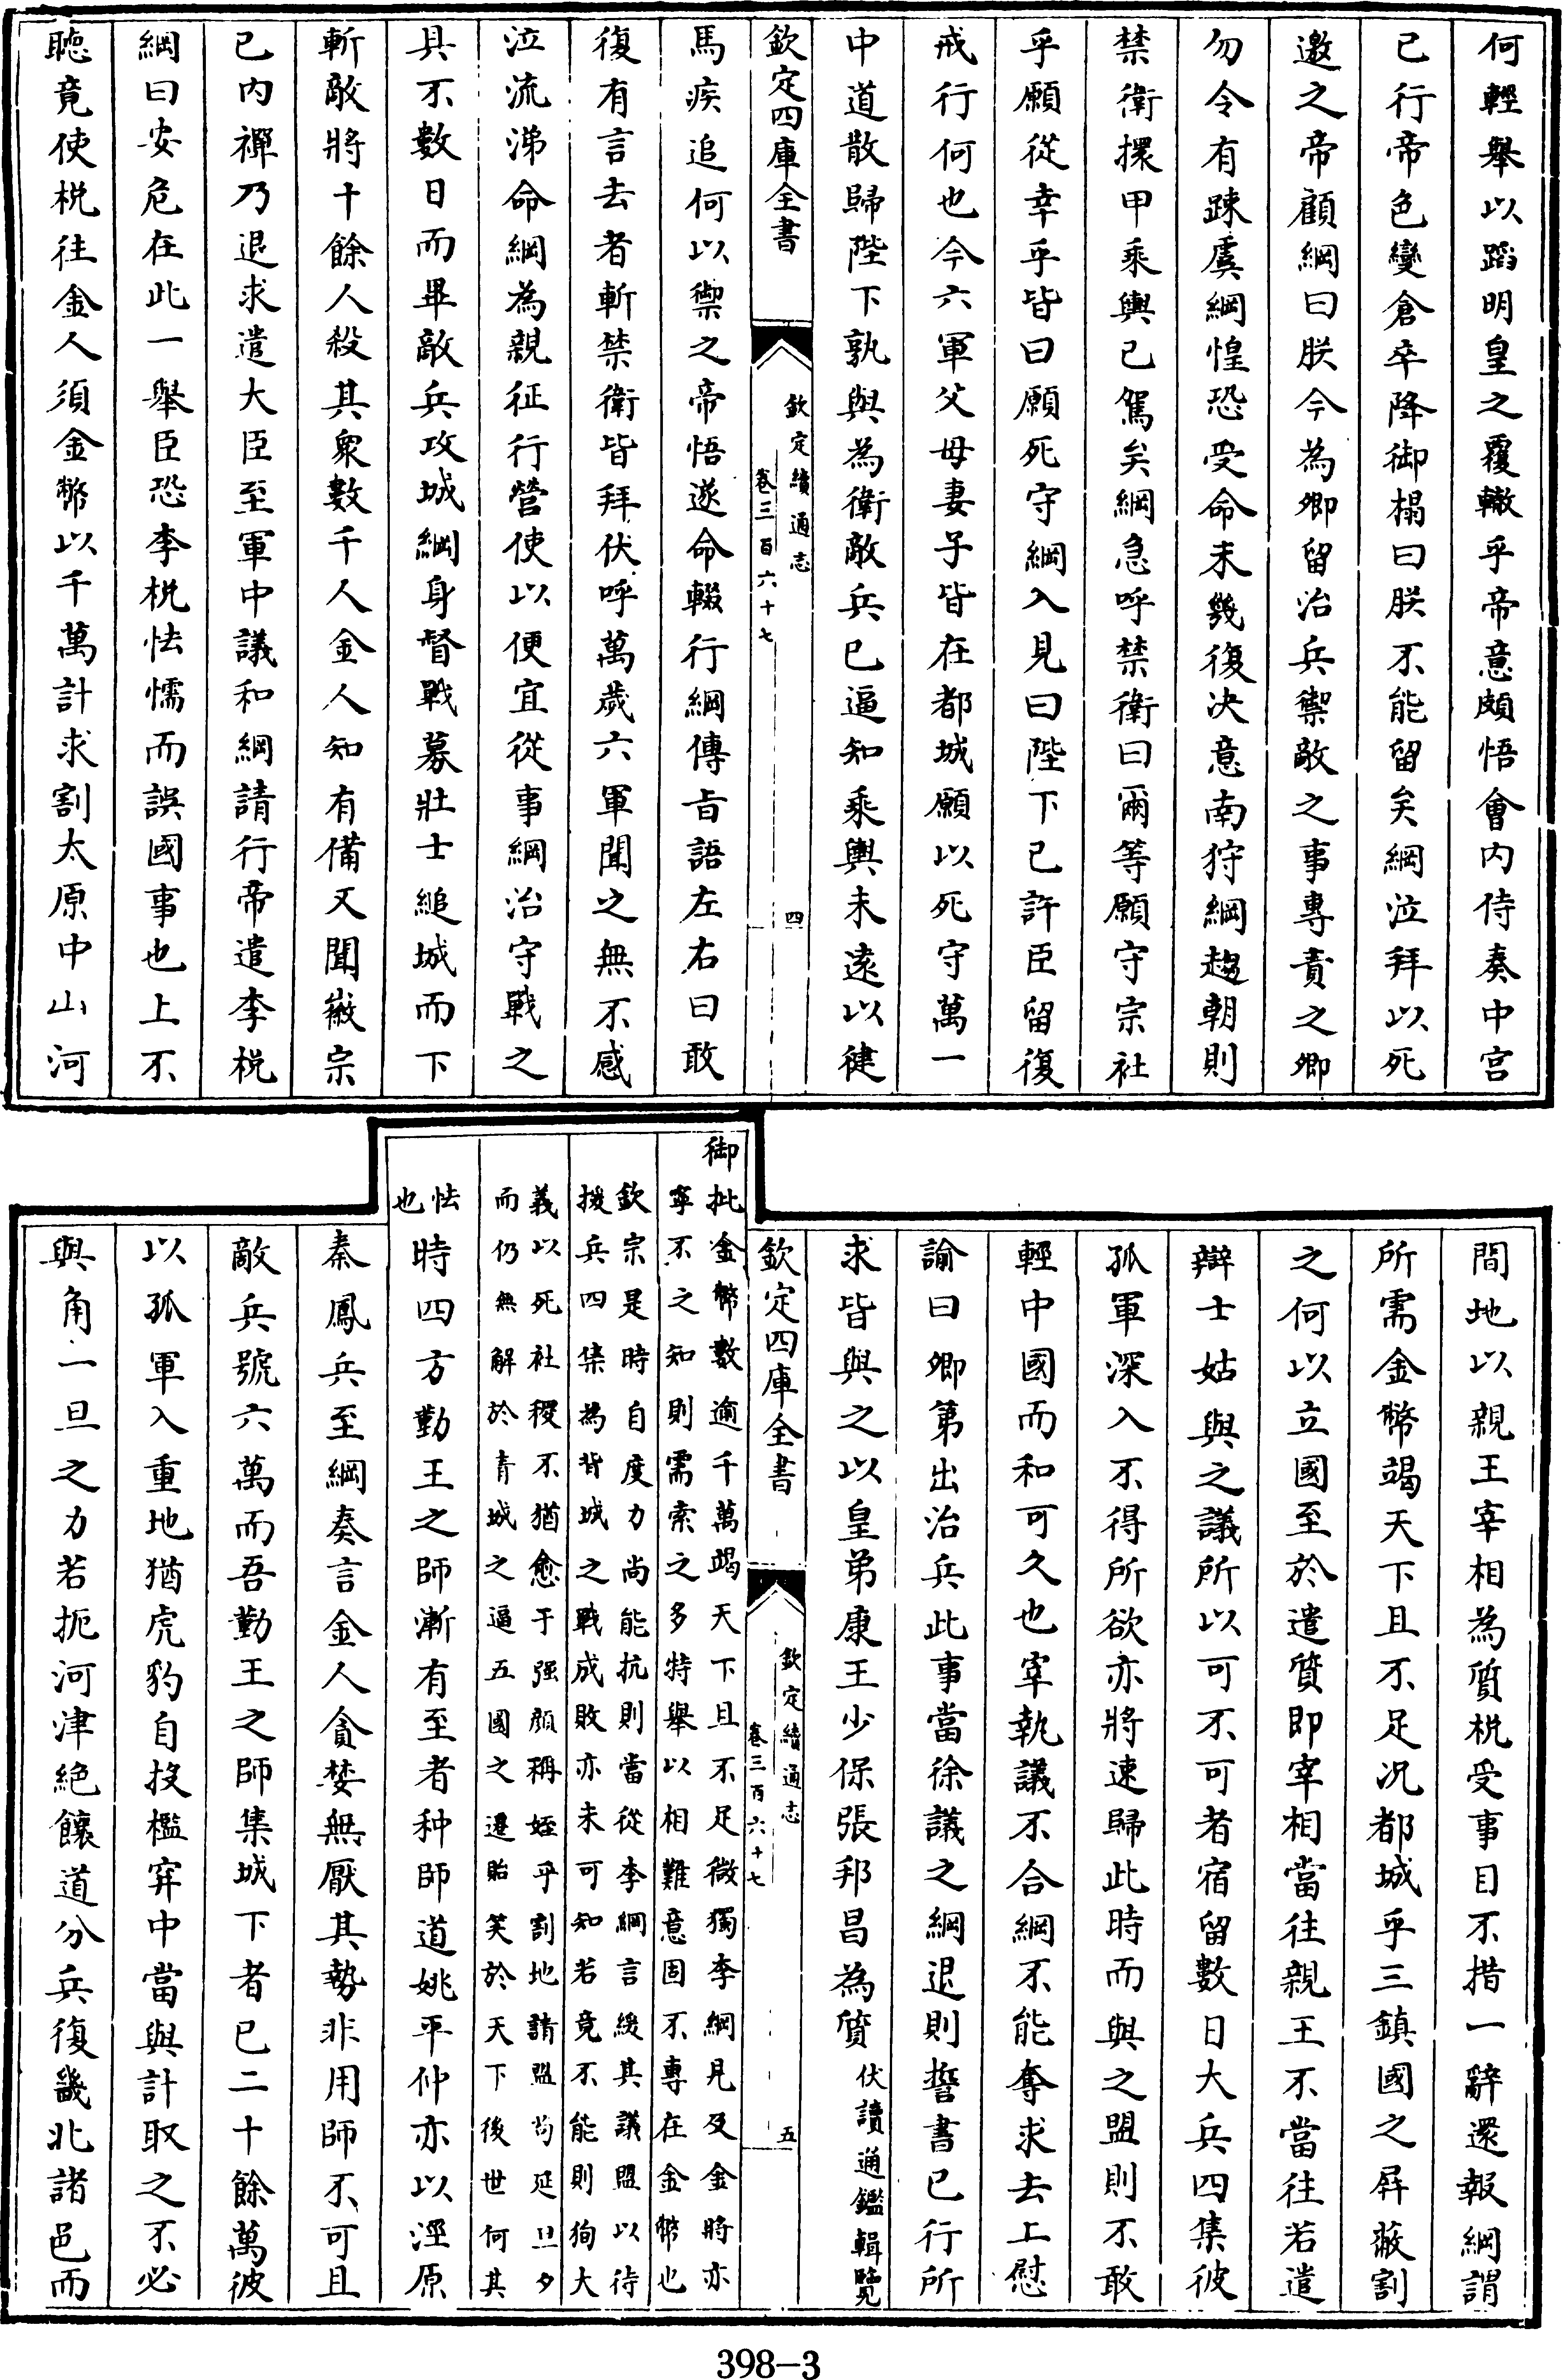 何輕舉以蹈明皇之覆轍乎帝意頗悟會内侍奏中宫
已行帝色變倉卒降御榻曰朕不能留矣綱泣拜以死
邀之帝顧綱曰朕今為卿留治兵禦敵之事專責之卿
勿令有踈虞綱惶恐受命未幾復决意南狩綱趨朝則
禁衛擐甲乘輿已駕矣綱急呼禁衛曰爾等願守宗社
乎願從幸乎皆曰願死守綱入見曰陛下已許臣留復
戒行何也今六軍父母妻子皆在都城願以死守萬一
中道散歸陛下孰與為衛敵兵已逼知乘輿未遠以健
欽定四庫全書
欽定續通志
卷三百六十七
四
馬疾追何以禦之帝悟遂命輟行綱傳旨語左右曰敢
復有言去者斬禁衛皆拜伏呼萬歲六軍聞之無不感
泣流涕命綱為親征行營使以便宜從事綱治守戰之
具不數日而畢敵兵攻城綱身督戰募壯士縋城而下
斬敵將十餘人殺其衆數千人金人知有備又聞徽宗
已内禪乃退求遣大臣至軍中議和綱請行帝遣李梲
綱曰安危在此一舉臣恐李梲怯懦而誤國事也上不
聽竟使梲往金人須金幣以千萬計求割太原中山河
間地以親王宰相為質梲受事目不措一辭還報綱謂
所需金幣竭天下且不足况都城乎三鎮國之屏蔽割
之何以立國至於遣質即宰相當往親王不當往若遣
辯士姑與之議所以可不可者宿留數日大兵四集彼
孤軍深入不得所欲亦將速歸此時而與之盟則不敢
輕中國而和可久也宰執議不合綱不能奪求去上慰
諭曰卿第出治兵此事當徐議之綱退則誓書已行所
求皆與之以皇弟康王少保張邦昌為質伏讀通鑑輯覽
欽定四庫全書
欽定續通志
卷三百六十七
五
御批金幣數逾千萬竭天下且不足微獨李綱見及金將亦
寧不之知則需索之多特舉以相難意固不專在金幣也
欽宗是時自度力尚能抗則當從李綱言緩其議盟以待
援兵四集為背城之戰成敗亦未可知若竟不能則狥大
義以死社稷不猶愈于强顔稱姪乎割地請盟茍延旦夕
而仍無解於青城之逼五國之遷貽笑於天下後世何其
怯
也時四方勤王之師漸有至者种師道姚平仲亦以涇原
秦鳳兵至綱奏言金人貪婪無厭其勢非用師不可且
敵兵號六萬而吾勤王之師集城下者已二十餘萬彼
以孤軍入重地猶虎豹自投檻穽中當與計取之不必
與角一旦之力若扼河津絶饟道分兵復畿北諸邑而
398-3